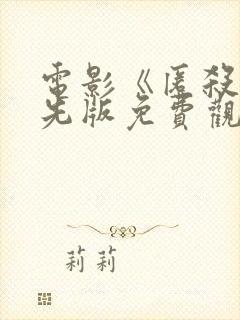 電影《匿殺
光版免費觀
莉莉